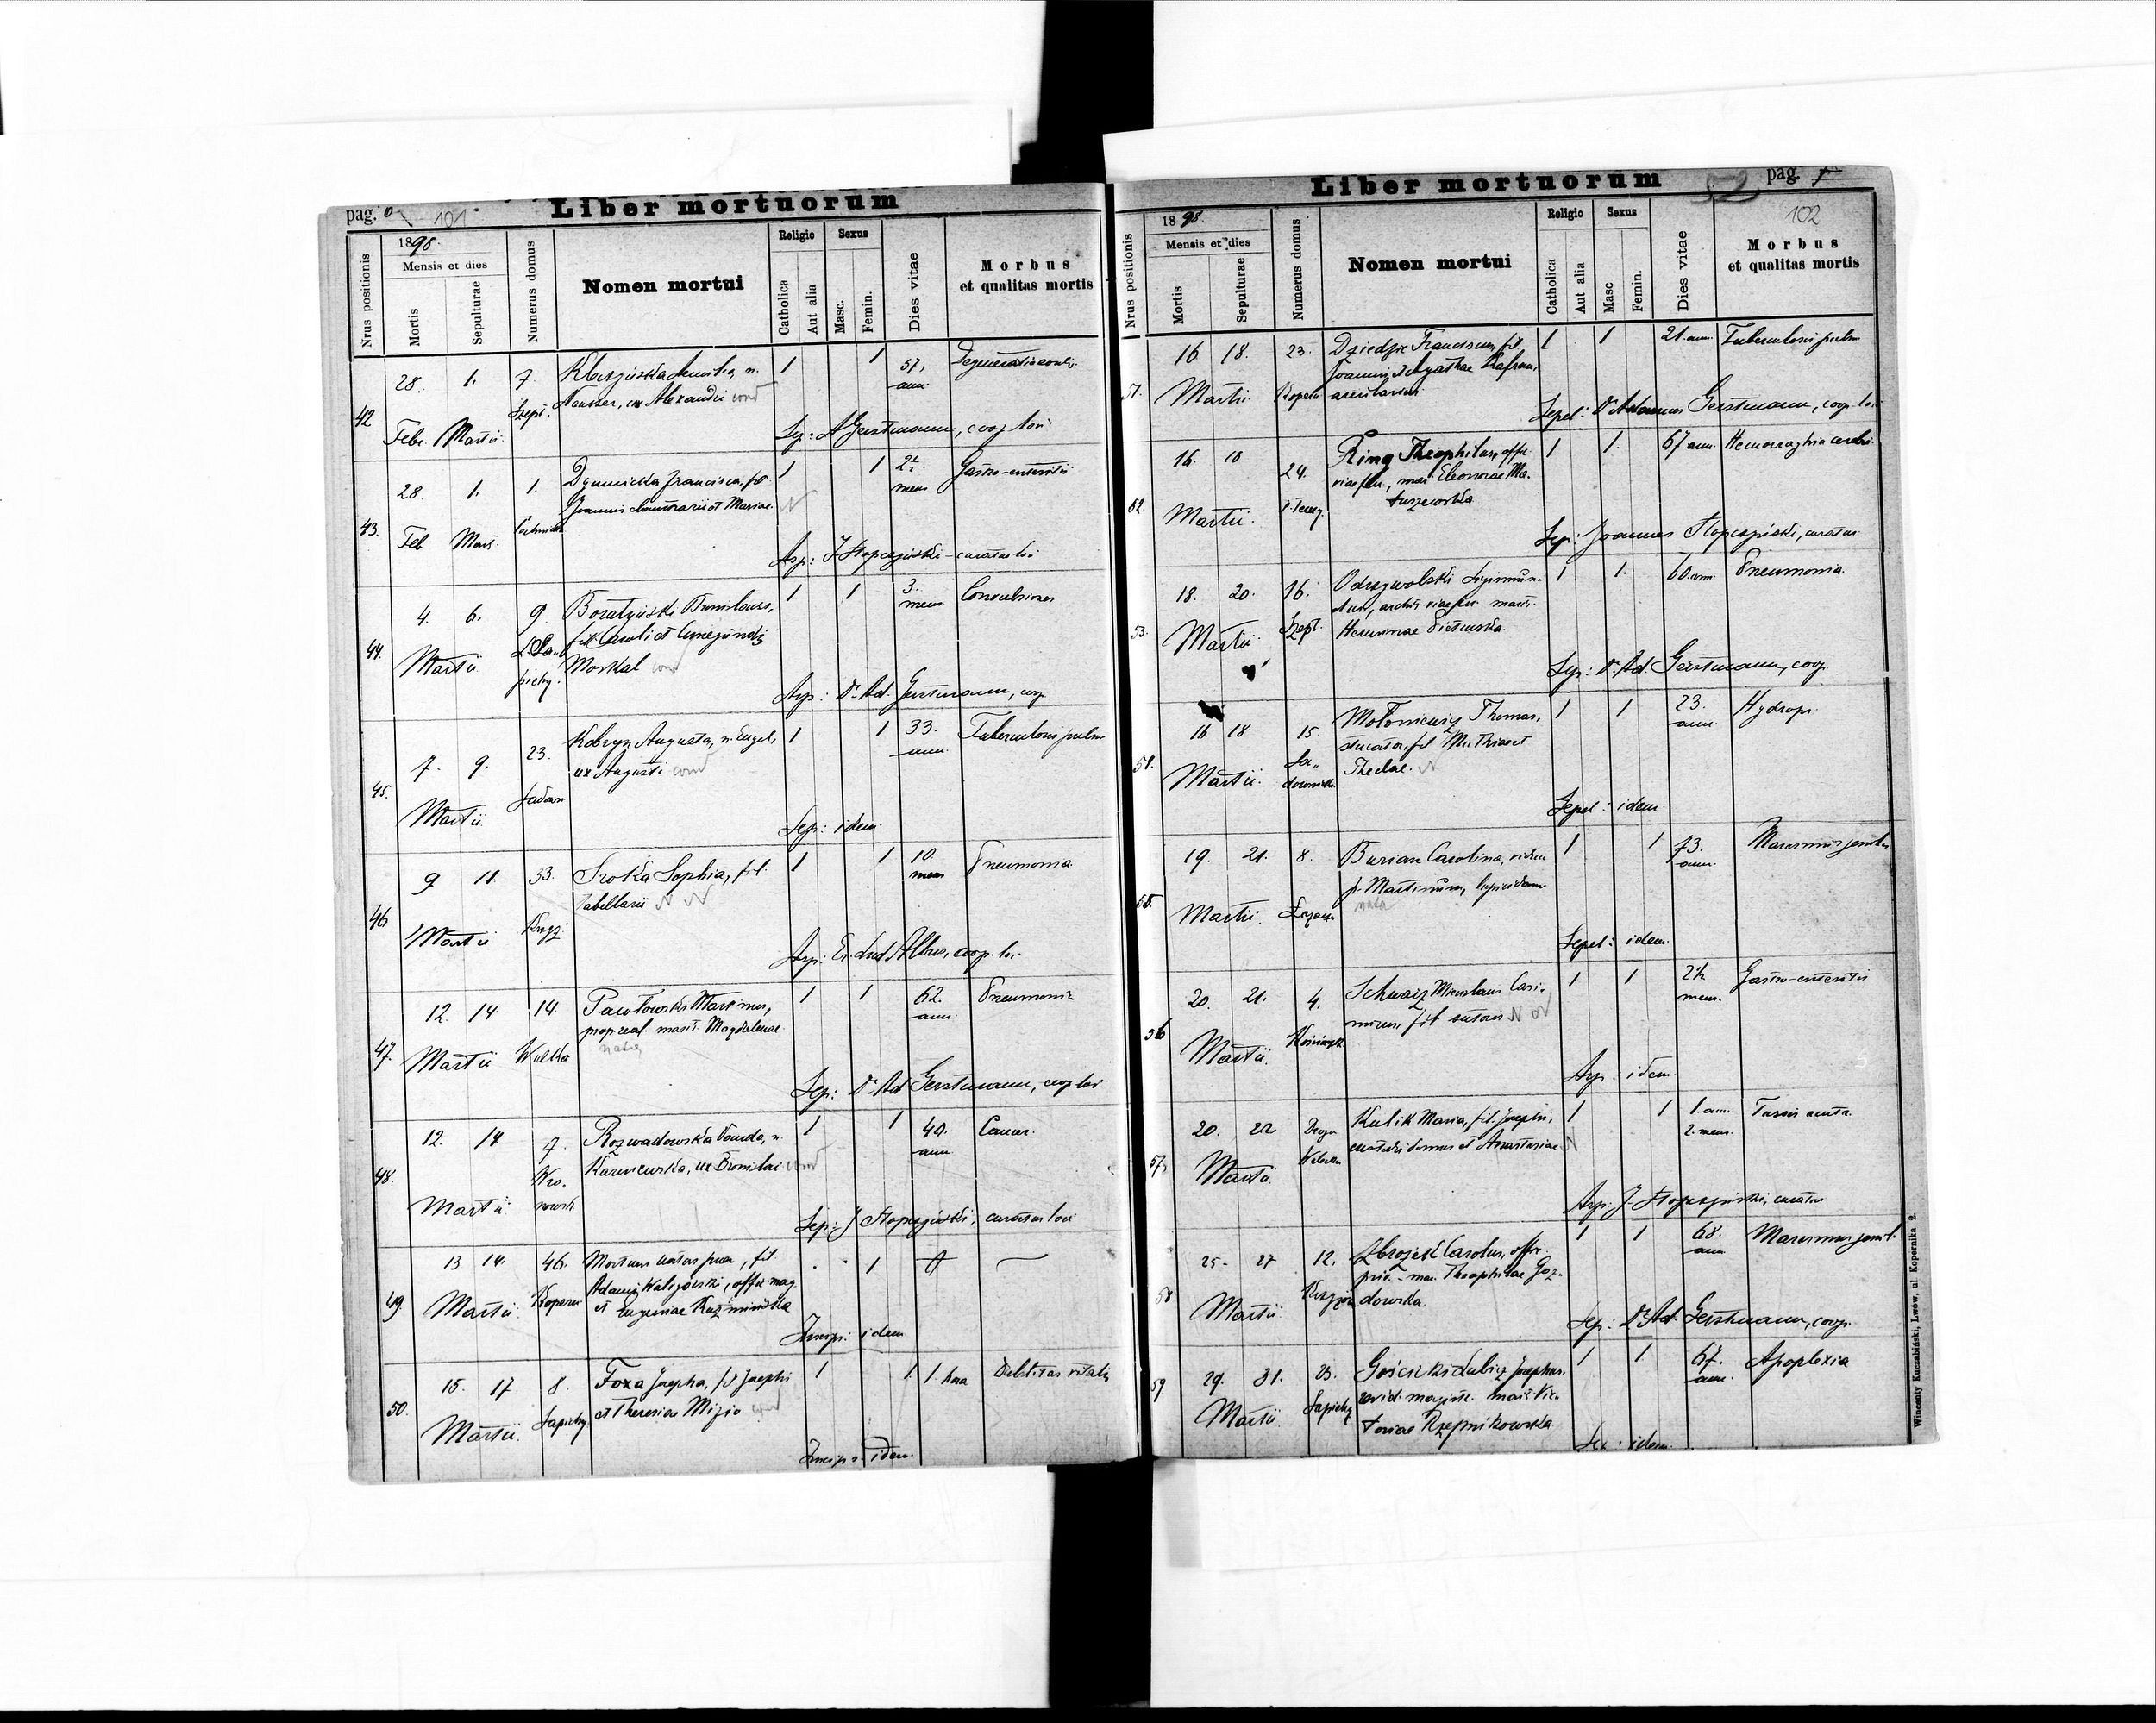 pag. 101
Liber mortuorum
Nrus positionis
1898.
Mensis et dies
Mortis
Sepulturae
Numerus domus
Nomen mortui
Religio
Catholica
Aut alia
Sexus
Masc.
Femin.
Dies vitae
Morbus
et qualitas mortis
42 28. Febr. 1. Martii 7. Szept.
Aemilia, n.
Nausser, ux Alexandri
1 1 57. ann.
Sep: A Gerstmann, coop loci
43. 28. Feb 1. Mart. 1.
Francisca, fil
Joannis et Mariae. N
1 1 2½ mens Gastro-enteritis
Insp: J Stopczyński curatus loci
44. 4. 6. Martii 9. L. Sapiehy.
Boratyński Bronislaus,
fil Caroli et Cunegundis
Moskal
1 1 3. mens Convulsiones
Insp: Dr. Ad. Gerstmann, coop.
45. 7. 9. Martii 23. Sadown
Kobryn Augusta, n. Engel,
ux Augusti
1 1 33. ann. Tuberculosis pulm
Sep: idem
46 9 11. Martii 33. Krzyż
Sroka Sophia, fil.
tabellarii N N
1 1 10. mens Pneumonia
Insp: Albus, coop. loci
47. 12. 14. Martii 14. Wulka
Pawłowski Martinus,
prop real. marit. Magdalenae
1 1 62. ann. Pneumonia
Sep: Dr Ad Gerstmann, coop loci
48. 12. 14 Martii 7. Wronowsk
Rozwadowska Vanda, n.
ux Bronislai
1 1 40. ann. Cancer.
Sep: J Stopczyński, curatus loci
49 13 14. Martii 46. Kopern
Mortuus natus puer, fil
Adami Waligórski, offic mag
et Eugeniae Kuzmińska
1 0 —
Inscrips: idem
50. 15. 17 Martii. 8. Sapiehy
Foxa Josepha, fil Josephi
et Theresiae Mizio
1 1. 1. hora Debilitas vitalis
Inscrips: idem.
Liber mortuorum
52
pag.
102
Nrus positionis
1898.
Mensis et dies
Mortis
Sepulturae
Numerus domus
Nomen mortui
Religio
Catholica
Aut alia
Sexus
Masc
Femin.
Dies vitae
Morbus
et qualitas mortis
51. 16 18. Martii 23. Kopern
Dziedzic Franciscus, fil.
Joannis et Agathae
1 1 21. ann. Tuberculosis pulm
Sepel: Dr Adamus Gerstmann, coop. loci
52. 16. 18 Martii. 24.
Ring Theophilus, offic
viae ferr., mar. Eleonorae Ma-
tuszewska
1 1. 67 ann. Hemorraghia cerebri
Sep: Joannes Stopczyński, curatus
53. 18. 20. Martii 16. Szept.
Odrzywolski Sigismun-
dus, viae ferr marit.
Herminae
1 1. 60. ann. Pneumonia
Sep: Dr. Ad. Gerstmann, coop.
54. 16. 18. Martii. 15 Sadownick.
Thomas,
stucator, fil Mathiae et
Theclae. N
1 1 23. ann. Hydrops
Sepel: idem
55. 19. 21. Martii. 8.
Burian Carolina, vidua
p. Martinum, lapicidam
1 1 73. ann. Marasmus senilis
Sepel: idem.
56 20. 21. Martii. 4.
Schwarz Miecislaus Casi-
mirus, fil sutoris N N
1 1 2½ mens. Gastro-enteritis
Insp. idem.
57. 20. 22 Martii Droga Wulecka
Kulik Maria, fil. Josephi,
custodis domus et Anastasiae N
1 1 1. ann. 2. mens. Tussis acuta.
Insp: J. Stopczyński, curatus
58 25. 27 Martii 12.
Zbrożek Carolus, offic.
priv. mar. Theophilae Goz-
dowska.
1 1 68. ann Marasmus senil.
Sep: Dr Ad. Gerstmann, coop.
59. 29. 31. Martii 25. Sapiehy
Gościcki Lubicz Josephus
marit Vic-
toriae Rzepnikowska
1 1. 67. ann. Apoplexia
Sep: idem.
Wincenty Kuczabiński, Lwów, ul. Kopernika 2.